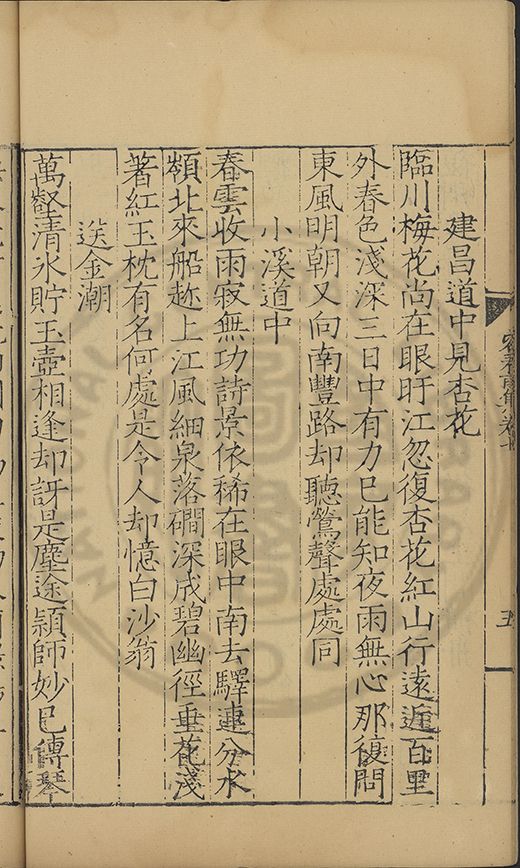 建昌道中見杏花
臨川梅花尚在眼盱江忽復杏花紅山行遠近百里
外春色淺深三日中有力巳能知夜雨無心那復問
東風明朝又向南豐路却聽鶯聲處處同
小溪道中
春雲收雨寂無功詩景依稀在眼中南去驛連分水
嶺北來船趂上江風細泉落磵深成碧幽徑垂花淺
著紅玉枕有名何處是令人却憶白沙翁
送金潮
萬壑清氷貯玉壺相逢却訝是塵途頴師妙巳傳琴
五